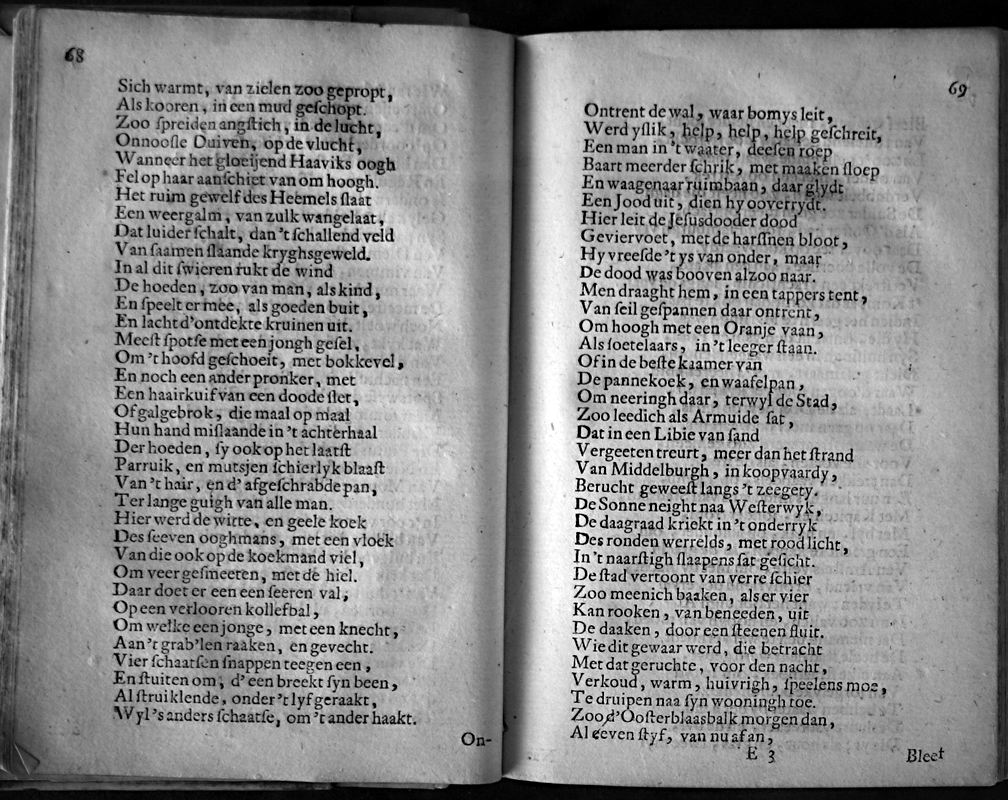 68
Sich warmt, van zielen zoo gepropt,
Als kooren, in een mud geſchopt.
Zoo ſpreiden angſtich, in de lucht,
Onnooſle Duiven, op de vlucht,
Wanneer het gloeijend Haaviks oogh
Fel op haar aanſchiet van om hoogh.
Het ruim gewelf des Heemels ſlaat
Een weergalm, van zulk wangelaat,
Dat luider ſchalt, dan 't ſchallend veld
Van ſaamen ſlaande kryghsgeweld.
In al dit ſwieren rukt de wind
De hoeden, zoo van man, als kind,
En ſpeelt er mee, als goeden buit,
En lacht d'ontdekte kruinen uit.
Meeſt ſpotſe met een jongh geſel,
Om 't hoofd geſchoeit, met bokkevel,
En noch een ander pronker, met
Een haairkuif van een doode ſlet,
Of galgebrok, die maal op maal
Hun hand miſlaande in 't achterhaal
Der hoeden, ſy ook op het laatſt
Parruik, en mutsjen ſchierlyk blaaſt
Van 't hair, en d' afgeſchrabde pan,
Ter lange guigh van alle man.
Hier werd de witte, en geele koek
Des ſeeven ooghmans, met een vloek
Van die ook op de koekmand viel,
Om veer geſmeeten, met de hiel.
Daar doet er een een ſeeren val,
Op een verlooren kollefbal,
Om welke een jonge, met een knecht,
Aan 't grab'len raaken, en gevecht.
Vier ſchaatſen ſnappen teegen een,
En ſtuiten om, d' een breekt ſyn been,
Al ſtruiklende, onder 't lyf geraakt,
Wyl 's anders ſchaatſe, om 't ander haakt.
On-
69
Ontrent de wal, waar bomys leit,
Werd yſlik, help, help, help geſchreit,
Een man in 't waater, deeſen roep
Baart meerder ſchrik, met maaken ſloep
En waagenaar ruimbaan, daar glydt
Een Jood uit, dien hy ooverrydt.
Hier leit de Jeſusdooder dood
Geviervoet, met de harſſnen bloot,
Hy vreeſde 't ys van onder, maar
De dood was booven alzoo naar.
Men draaght hem, in een tappers tent,
Van ſeil geſpannen daar ontrent,
Om hoogh met een Oranje vaan,
Als ſoetelaars, in 't leeger ſtaan.
Of in de beſte kaamer van
De pannekoek, en waafelpan,
Om neeringh daar, terwyl de Stad,
Zoo leedich als Armuide ſat,
Dat in een Libie van ſand
Vergeeten treurt, meer dan het ſtrand
Van Middelburgh, in koopvaardy,
Berucht geweeſt langs 't zeegety.
De Sonne neight naa Weſterwyk,
De daagraad kriekt in 't onderryk
Des ronden werrelds, met rood licht,
In 't naarſtigh ſlaapens ſat geſicht.
De ſtad vertoont van verre ſchier
Zoo meenich baaken, als er vier
Kan rooken, van beneeden, uit
De daaken, door een ſteenen fluit.
Wie dit gewaar werd, die betracht
Met dat geruchte, voor den nacht,
Verkoud, warm, huivrigh, ſpeelens moe,
Te druipen naa ſyn wooningh toe.
Zoo d'Ooſterblaasbalk morgen dan,
Al eeven ſtyf, van nu af an,
E 3
Bleet